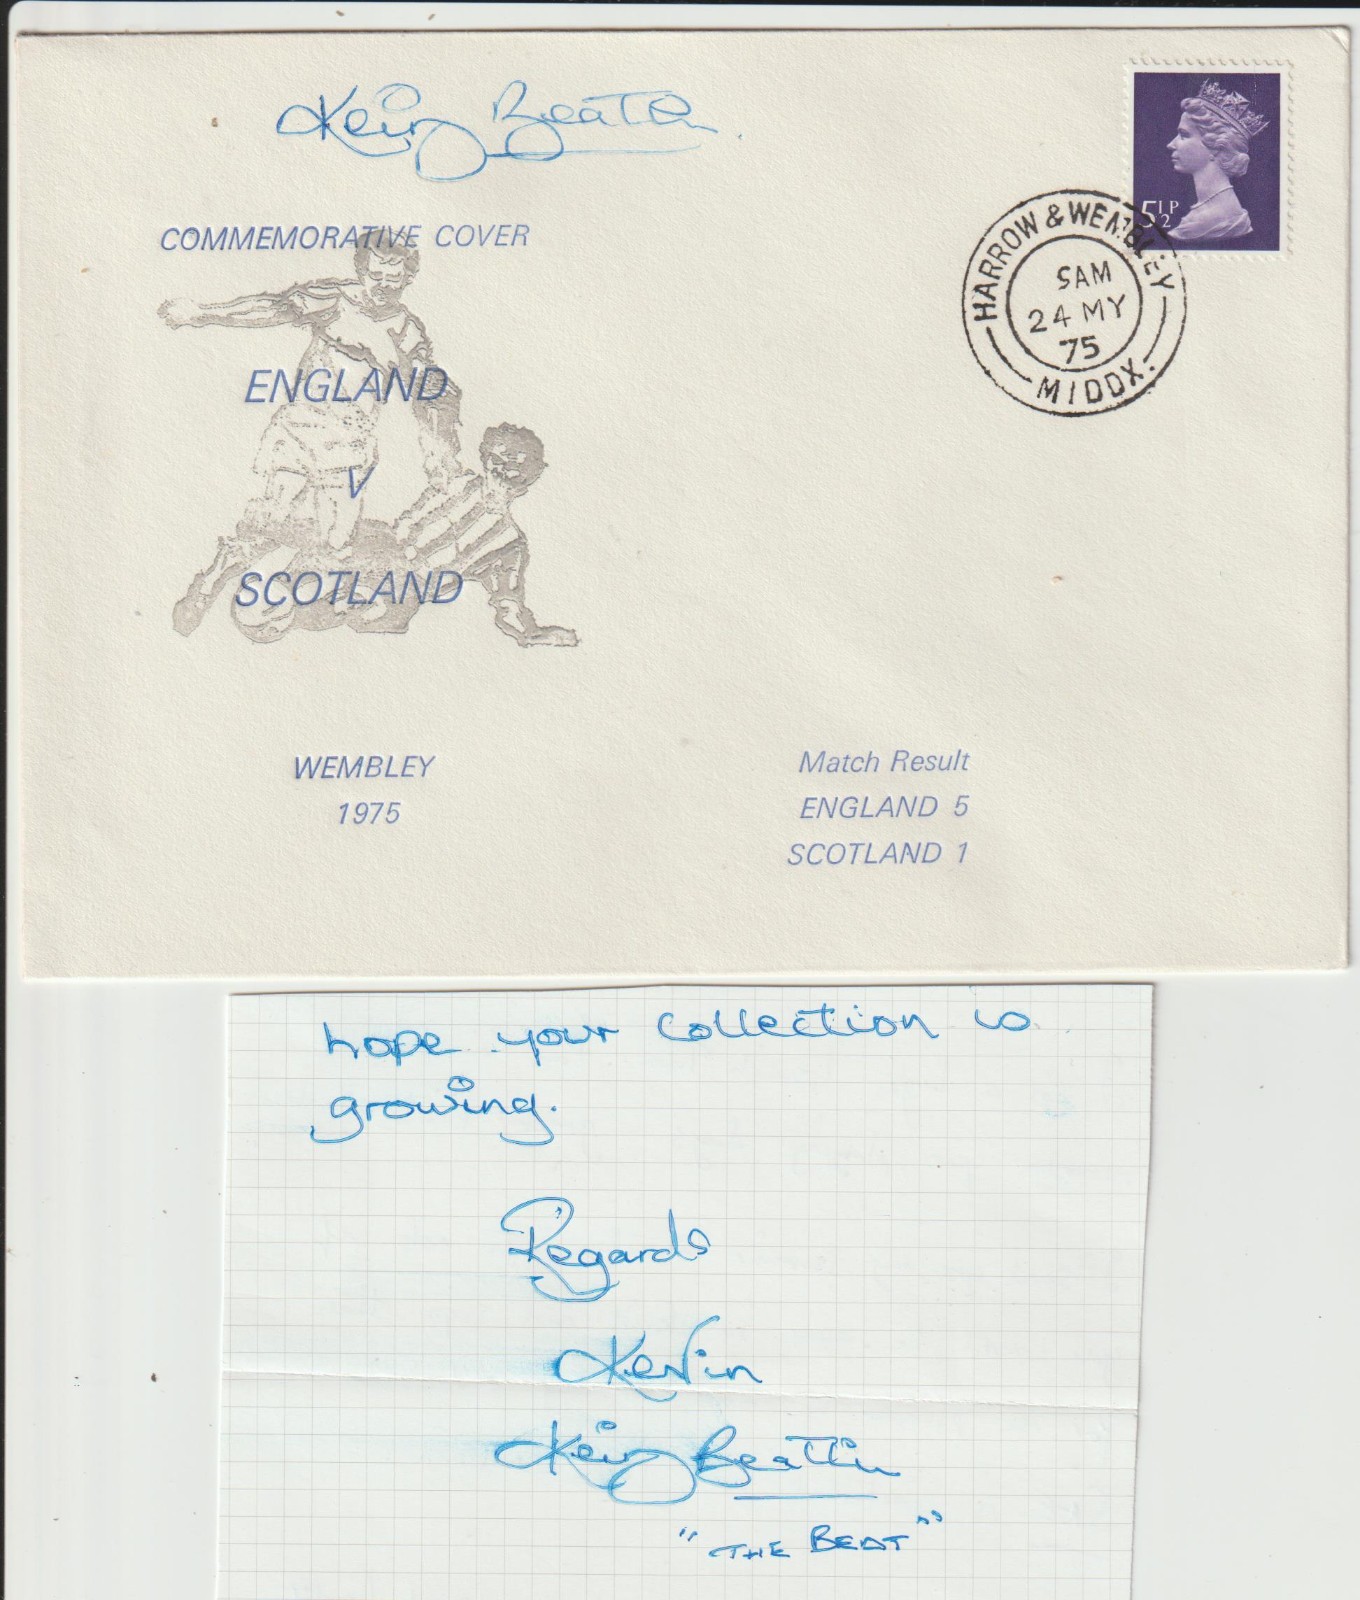 Kevin Beattie
5½P
HARROW & WEMBLEY
5AM
24 MY
75
MIDDX.
COMMEMORATIVE COVER
ENGLAND
V
SCOTLAND
WEMBLEY
1975
Match Result
ENGLAND 5
SCOTLAND 1
hope your collection is
growing.
Regards
Kevin
Kevin Beattie
"THE BEAT"